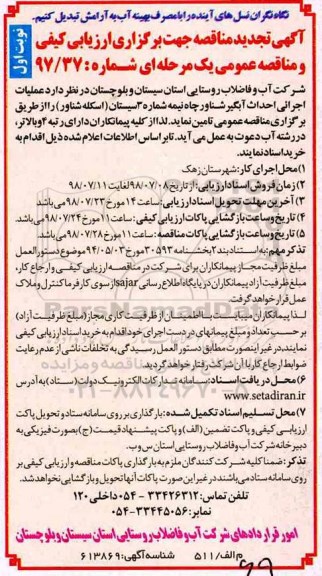 نگاه نگران نسل های آینده را با مصرف بهینه آب به آرامش تبدیل کنیم.
نوبت اول
آگهی تجدید مناقصه جهت برگزاری ارزیابی کیفی
و مناقصه عمومی یک مرحله ای شماره: ۹۷/۳۷
شرکت آب و فاضلاب روستایی استان سیستان و بلوچستان در نظر دارد عملیات
اجرائی احداث آبگیر شناور چاه نیمه شماره ۳ سیستان (اسکله شناور) را از طریق
برگزاری مناقصه عمومی تامین نماید. لذا از کلیه پیمانکاران دارای رتبه ۴ و بالاتر،
در رشته آب دعوت به عمل می آید. تا بر اساس اطلاعات اعلام شده ذیل اقدام به
خرید اسناد نمایند.
۱) محل اجرای کار: شهرستان زهک
۲) زمان فروش اسناد ارزیابی: از تاریخ ۹۸/۰۷/۰۸ لغایت ۹۸/۰۷/۱۱
۳) آخرین مهلت تحویل اسناد ارزیابی: ساعت ۱۴ مورخ ۹۸/۰۷/۲۳ می باشد
۴) تاریخ و ساعت بازگشایی پاکات ارزیابی کیفی: ساعت ۱۱ مورخ ۹۸/۰۷/۲۴ می باشد.
۵) تاریخ و ساعت بازگشایی پاکات مناقصه: ساعت ۱۱ مورخ ۹۸/۰۷/۲۸ می باشد
تذکر مهم: به استناد بند ۲ بخشنامه ۳۰۵۹۳ مورخ ۹۴/۰۵/۰۳ موضوع دستورالعمل
مبلغ ظرفیت مجاز پیمانکاران برای شرکت در مناقصه ارزیابی کیفی و ارجاع کار،
مبلغ ظرفیت آزاد پیمانکاران در پایگاه اطلاع رسانی sajar از سوی کارفرما کنترل و ملاک
عمل قرار خواهد گرفت.
لذا پیمانکاران میبایست با اطمینان از ظرفیت کاری مجاز (مبلغ ظرفیت آزاد)
بر حسب تعداد و مبلغ پیمانهای در دست اجرای خود اقدام به خرید اسناد ارزیابی کیفی
نمایند، در غیر اینصورت مطابق دستور العمل رسیدگی به تخلفات ناشی از عدم رعایت
ضوابط ارجاع کار با آن شرکت رفتار خواهد گردید
۶) محل دریافت اسناد: سامانه تدارکات الکترونیک دولت (ستاد) به آدرس
www.setadiran.ir
۷) محل تسلیم اسناد تکمیل شده: بارگذاری بر روی سامانه ستاد و تحویل پاکت
ارزیابی کیفی و پاکت تضمین (الف) و پاکت پیشنهاد قیمت (ج) بصورت فیزیکی به
دبیرخانه شرکت آب و فاضلاب روستایی استان س و ب.
تذکر: ضمنا کلیه شرکت کنندگان ملزم به بارگذاری پاکات مناقصه و ارزیابی کیفی بر
روی سامانه ستاد می باشند در غیر این صورت پاکات آنها تحویل و بازگشایی نخواهد شد.
تلفن تماس: ۳۳۴۲۶۳۱۲ - ۰۵۴ داخلی ۱۲۰
نمابر: ۳۳۴۴۵۰۵۶-۰۵۴
امور قراردادهای شرکت آب و فاضلاب روستایی استان سیستان و بلوچستان
م الف / ۵۱۱ شناسه آگهی: ۶۱۳۸۶۹